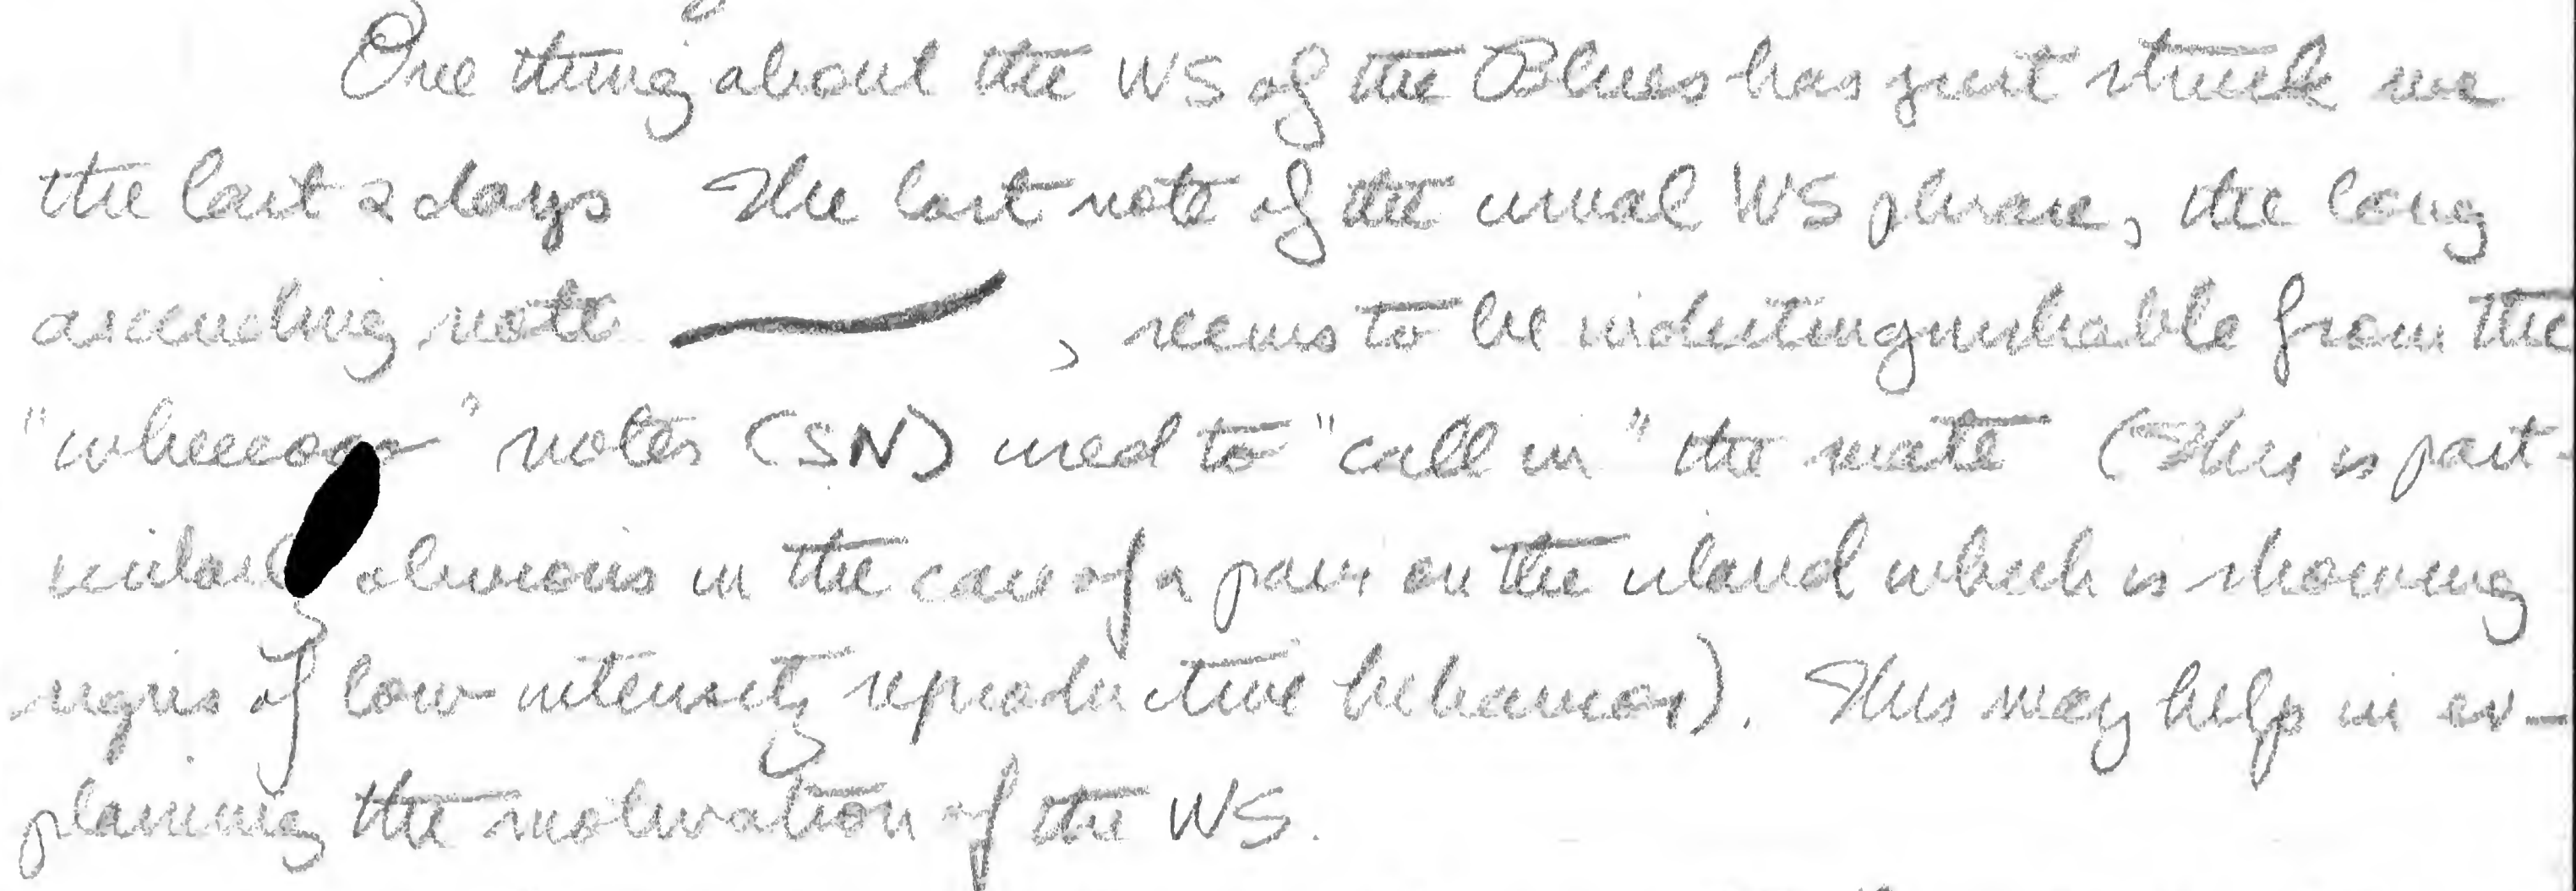 One thing about the WS of the Blues has just struck me
the last 2 days The last note of the usual WS phrase, the long
ascending note , seems to be indistinguishable from the
" notes (SN) used to "call in" the mate (This is part-
obvious in the case of a pair on the island which is showing
signs of low intensity reproductive behavior). This may help in ex-
plaining the motivation of the WS.